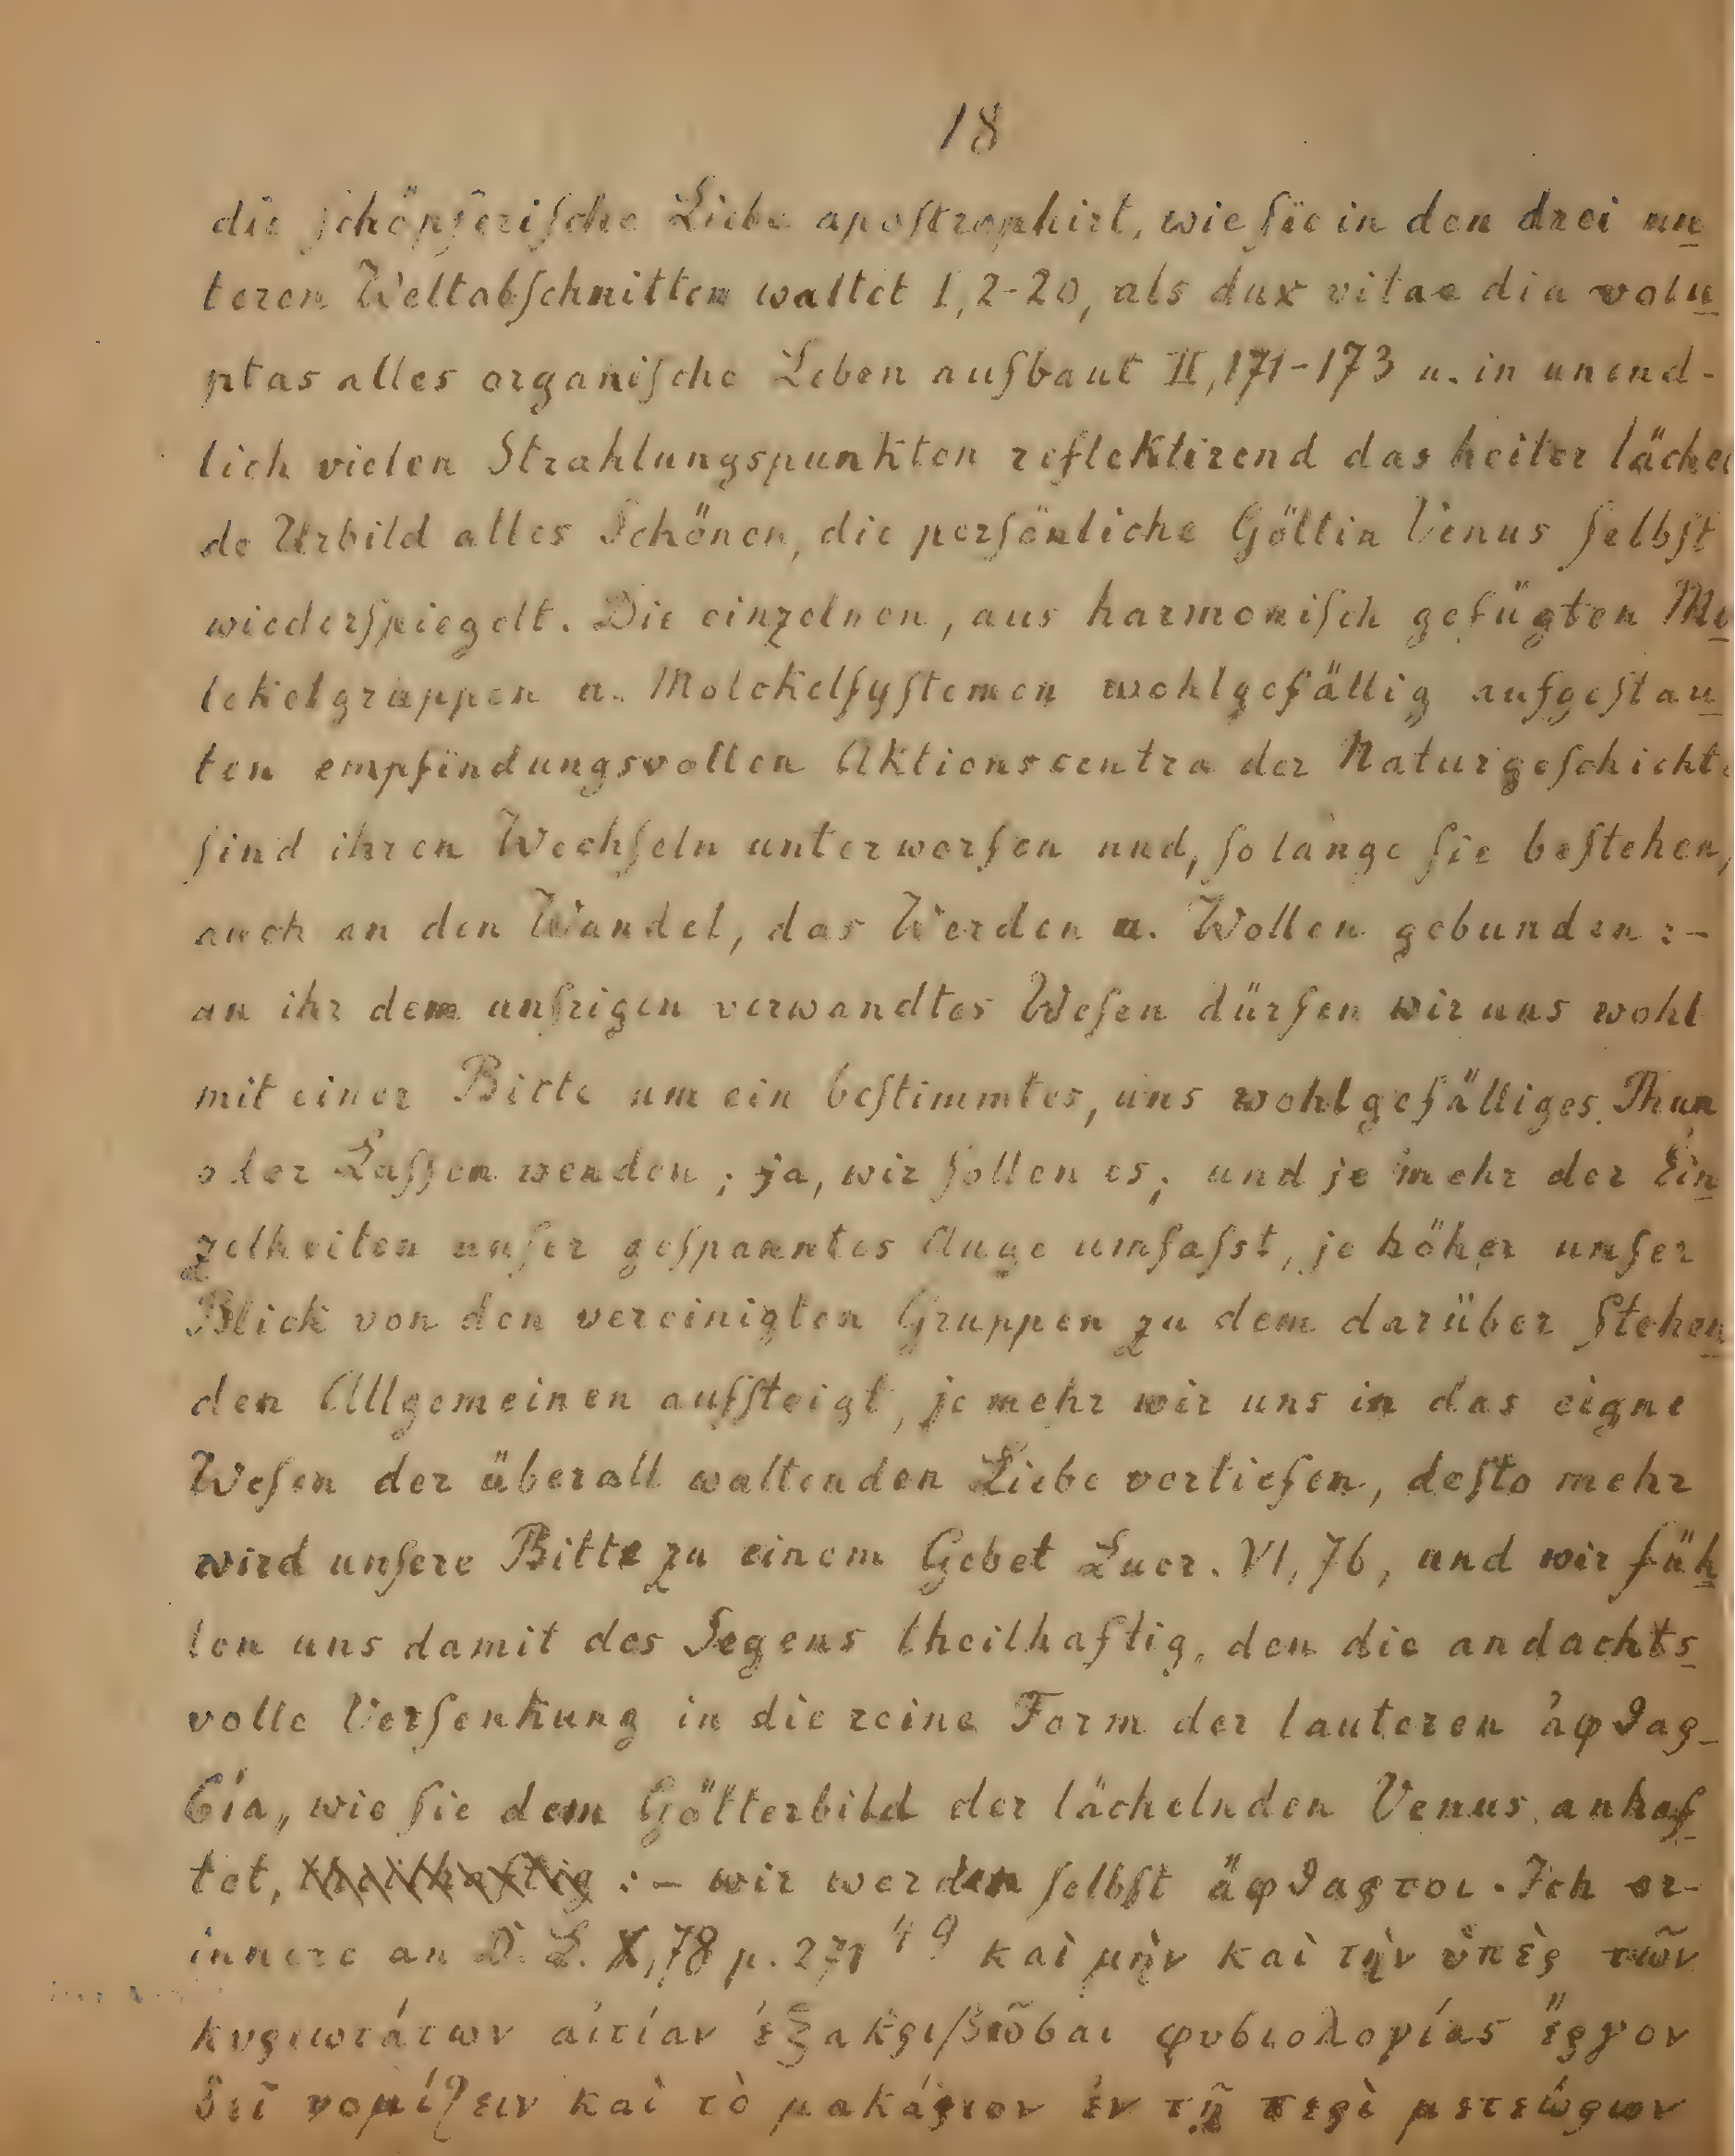 18
die ſchöpferiſche Liebe apoſtrophirt, wie ſie in den drei un
teren Weltabſchnitten waltet 1, 2-20, als dux vitae dia volu
ptas alles organiſche Leben aufbaut II, 171-173 u. in unend-
lich vielen Strahlungspunkten reflektirend das heiter läche
de Urbild alles Schönen, die perſönliche Göttin Venus ſelbſt
wiederſpiegelt. Die einzelnen, aus harmoniſch gefügten Mo
lekelgruppen u. Molekelſyſtemen wohlgefällig aufgeſtau
ten empfindungsvollen Aktionscentra der Naturgeſchichte
ſind ihren Wechſeln unterworfen und, ſo lange ſie beſtehen,
auch an den Wandel, das Werden u. Wollen gebunden :-
an ihr dem unſrigen verwandtes Weſen dürfen wir uns wohl
mit einer Bitte um ein beſtimmtes, uns wohlgefälliges Thun
oder Laſſen wenden ; ja, wir ſollen es; und je mehr der Ein
zelheiten unſer geſpanntes Auge umfaſst, je höher unſer
Blick von den vereinigten Gruppen zu dem darüber ſtehen
den Allgemeinen aufſteigt, je mehr wir uns in das eigne
Weſen der überall waltenden Liebe vertiefen, deſto mehr
wird unſere Bitte zu einem Gebet Lucr. VI, 76, und wir füh
len uns damit des Segens theilhaftig, den die andachts
volle Verſenkung in die reine Form der lauteren ἀφθαρ-
σία, wie ſie dem Götterbild der lächelnden Venus anhaf
tet, theilhaftig :- wir werden ſelbſt ἄφθαρτοι. Ich er-
innere an D. L. X, 78 p. 271 49 καὶ μὴν καὶ τὴν ὑπὲρ τῶν
κυριωτάτων αἰτίαν ἐξακριβῶσαι φυσιολογίας ἔργον
δεῖ νομίζειν καὶ τὸ μακάριον ἐν τῇ περὶ μετεώρων